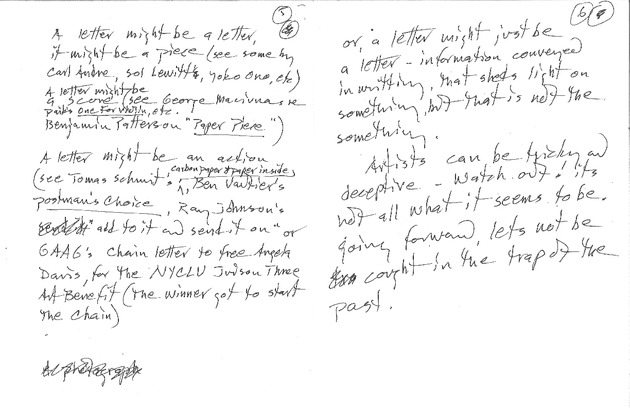 5
A letter might be a letter,
it might be a piece (see some by
Carl Andre, Sol Lewitt's, Yoko Ono, etc)
A letter might be
a score (see George Maciunas
Paik's One For Violin, etc.
Benjamin Patterson "Paper Piece")
A letter might be an action
carbon paper & paper inside,
(see Tomas Schmit's, Ben Vautier's
Postman's Choice, Ray Johnson's
"add to it and send it on" or
GAAG's Chain letter to free Angela
Davis, for the NYCLU Judson Three
Art Benefit (the winner got to start
the chain)
6
or, a letter might just be
a letter - information, conveyed
in writting, that sheds light on
something, but that is not the
something.
Artists can be tricky and
deceptive - watch out! its
not all what it seems to be.
Going forward, lets not be
cought in the trap of the
past.